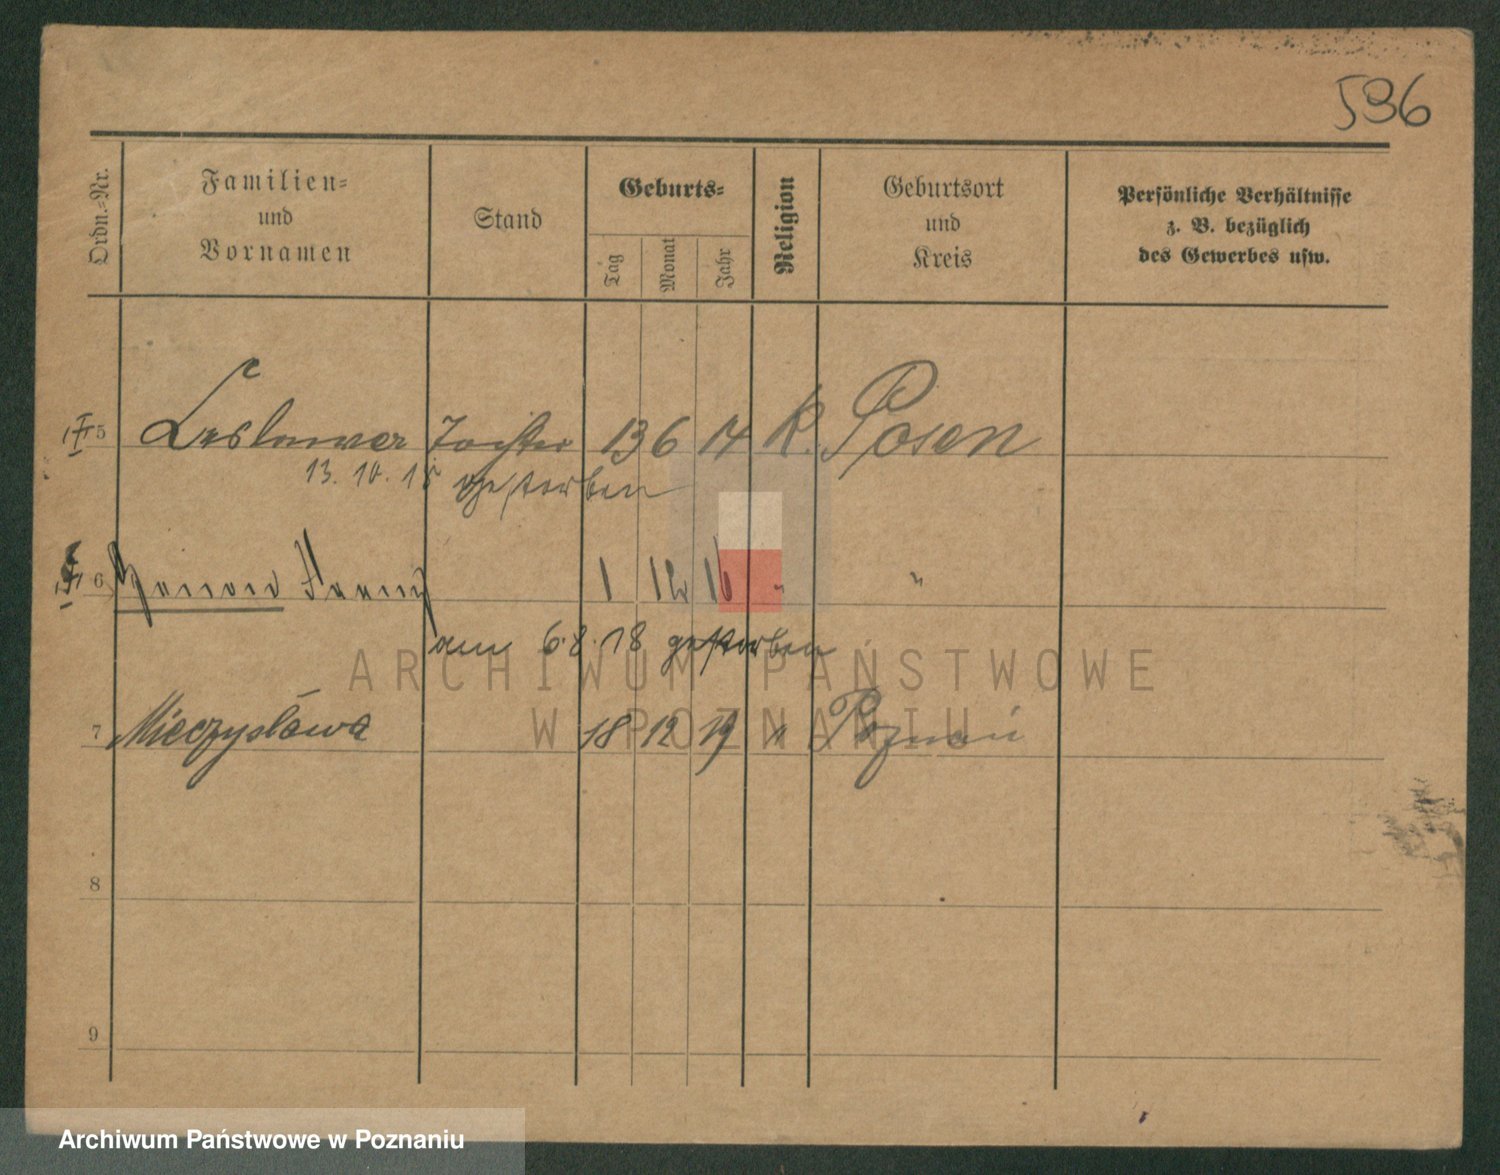 536
Ordn.-Nr.
Familien-
und
Vornamen
Stand
Geburts-
Tag
Monat
Jahr
Religion
Geburtsort
und
Kreis
Persönliche Verhältnisse
z. B. bezüglich
des Gewerbes usw.
5 Tochter 13 6 14 k. Posen
13. 10. 15 gestorben
6 1 12 16 " "
am 6.8.18 gestorben
7 Mieczysława 18 12 19 " Poznań
8
9
ARCHIWUM PAŃSTWOWE
W POZNANIU
Archiwum Państwowe w Poznaniu